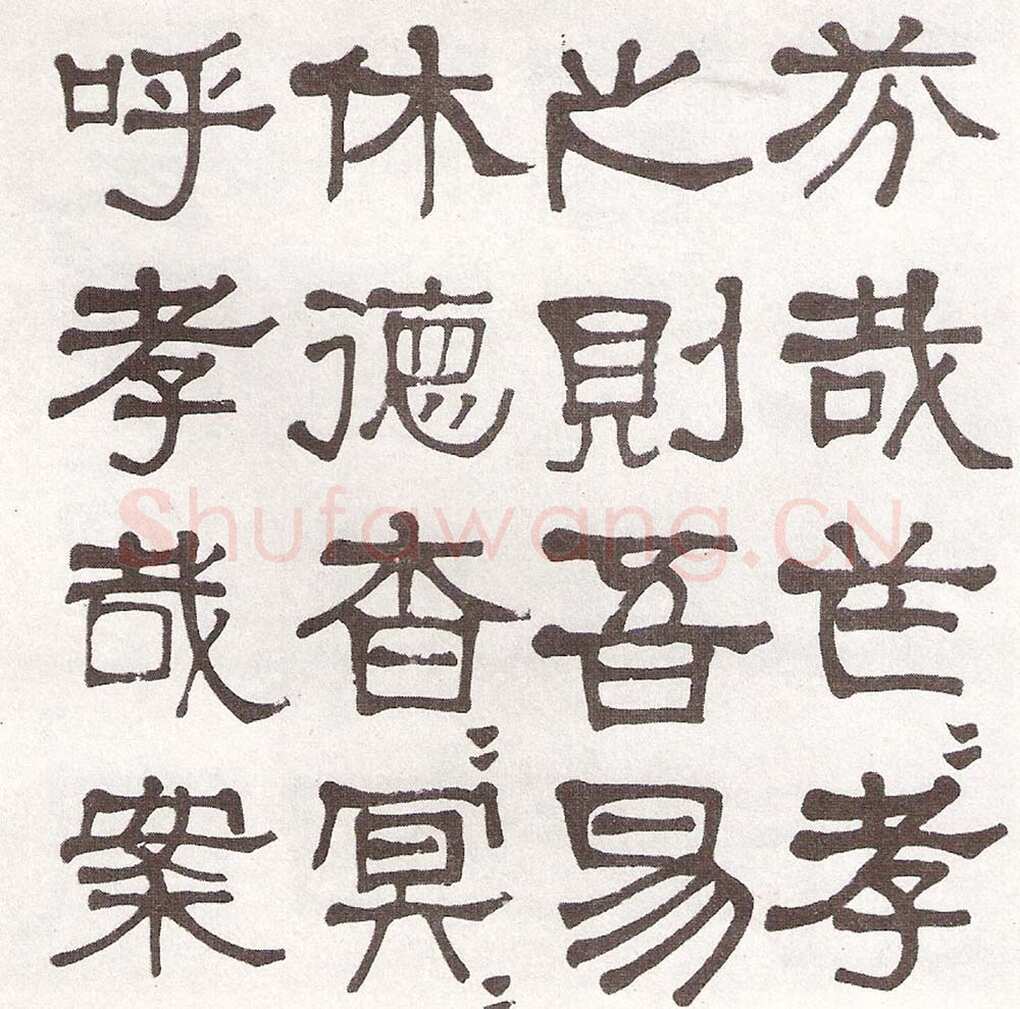 芬哉芒〻孝
之則吾易
休德杳〻冥〻
呼孝哉案
Shufawang.CN